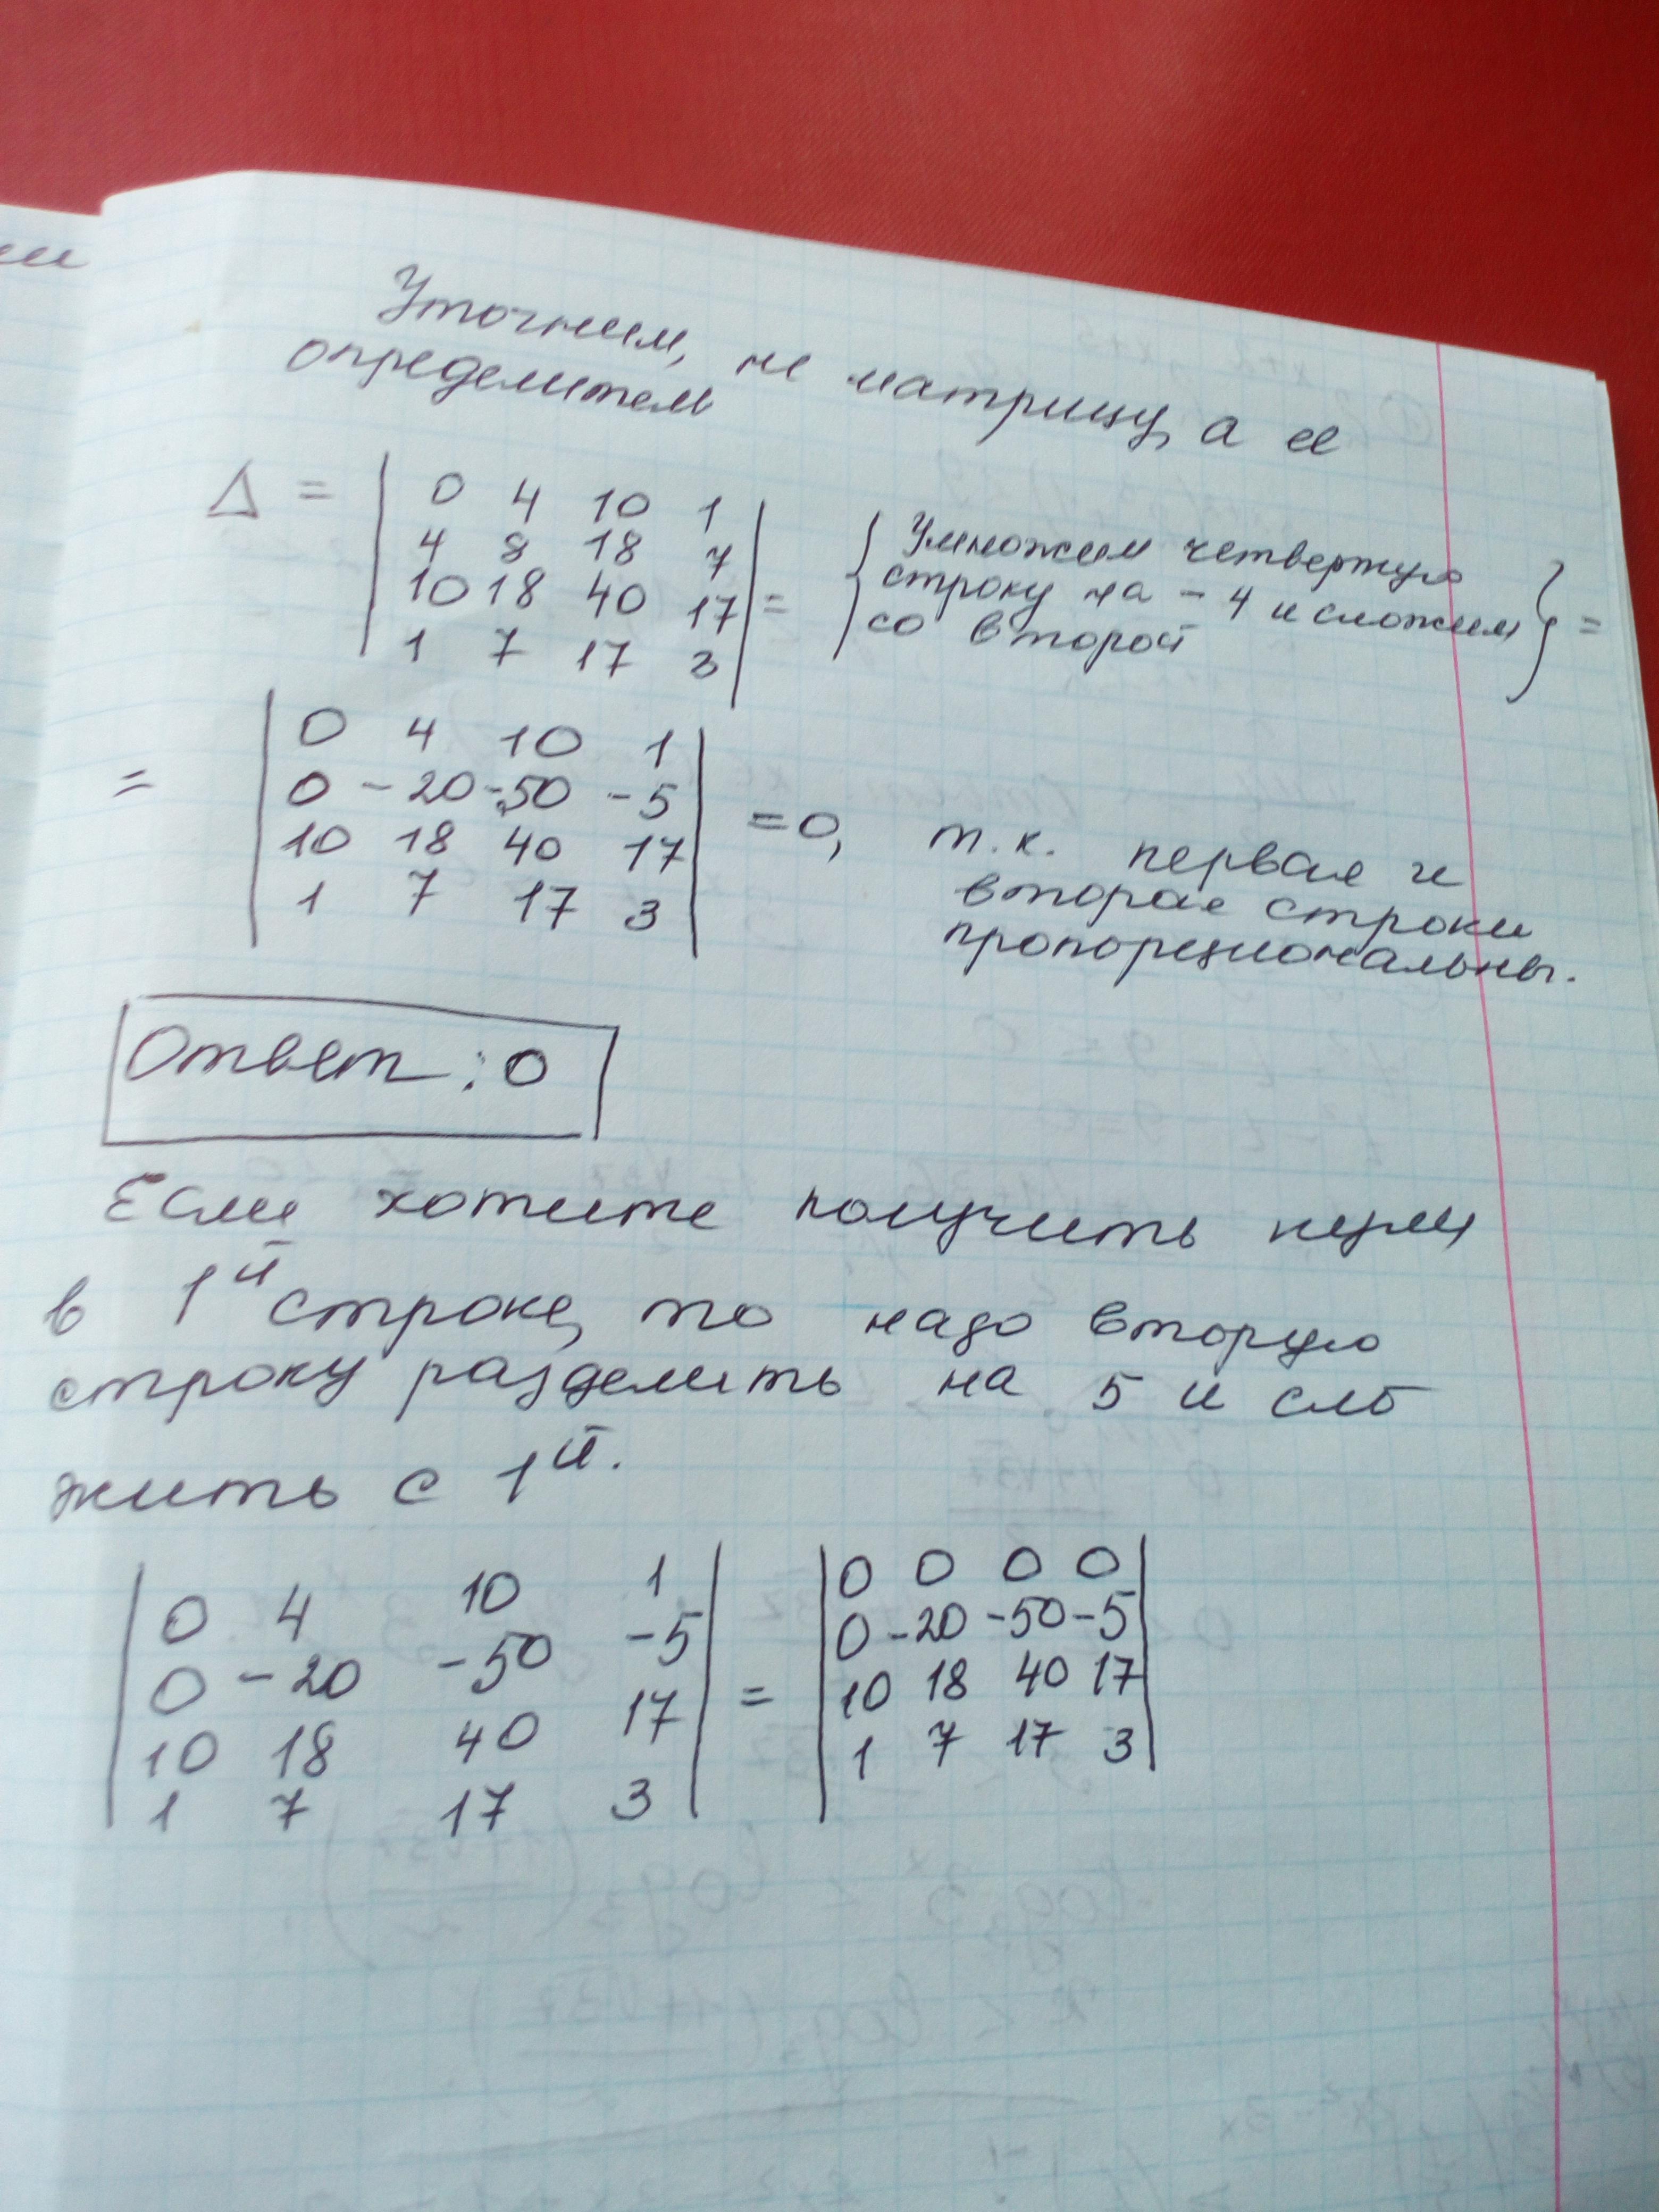 Уточним, не матрицу, а её
определитель
Δ = | 0 4 10 1 |
| 4 8 18 7 |
| 10 18 40 17 | =
| 1 7 17 3 |
{ Умножим четвертую
строку на - 4 и сложим
со второй } =
= | 0 4 10 1 |
| 0 - 20 - 50 - 5 |
| 10 18 40 17 |
| 1 7 17 3 |
= 0, т.к. первая и
вторая строки
пропорциональны.
Ответ : 0
Если хотите получить нули
в 1й строке, то надо вторую
строку разделить на 5 и сло
жить с 1й.
| 0 4 10 1 |
| 0 - 20 - 50 - 5 |
| 10 18 40 17 |
| 1 7 17 3 |
= | 0 0 0 0 |
| 0 - 20 - 50 - 5 |
| 10 18 40 17 |
| 1 7 17 3 |